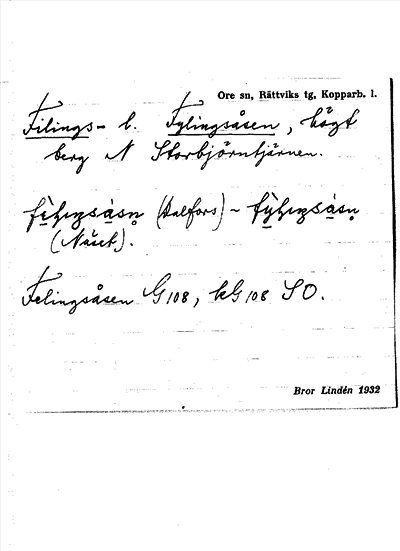 Ore sn, Rättviks tg, Kopparb. l.
Filings- l. Fylingsåsen, högt
berg N Storbjörntjärnen.
(Dalfors) ~
(Näset).
Felingsåsen G 108, kG 108 SO.
Bror Lindén 1932